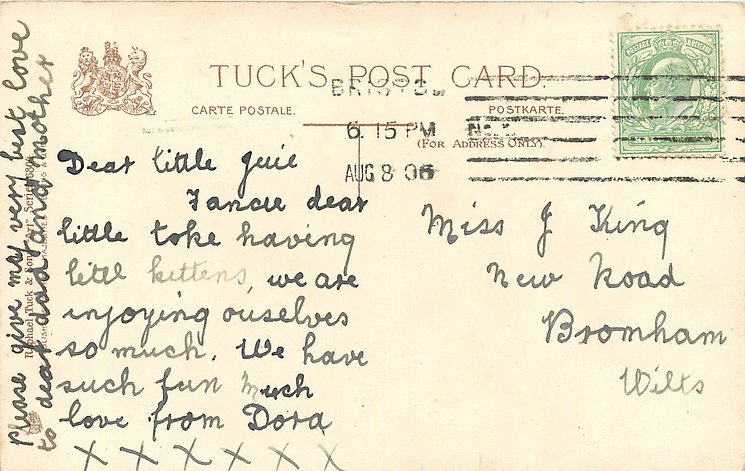 TUCK'S POST CARD.
CARTE POSTALE.
POSTKARTE.
(FOR ADDRESS ONLY).
POSTAGE
BRISTOL
6.15 PM
AUG 8 06
Dear little
Fancie dear
little toke having
littl kittens, we are
injoying ourselves
so much. We have
such fun Much
love from Dora
X X X X X X X
Miss J King
New Road
Bromham
Wilts
Please give may very best love
to dear dad and mother
Raphael Tuck & Sons